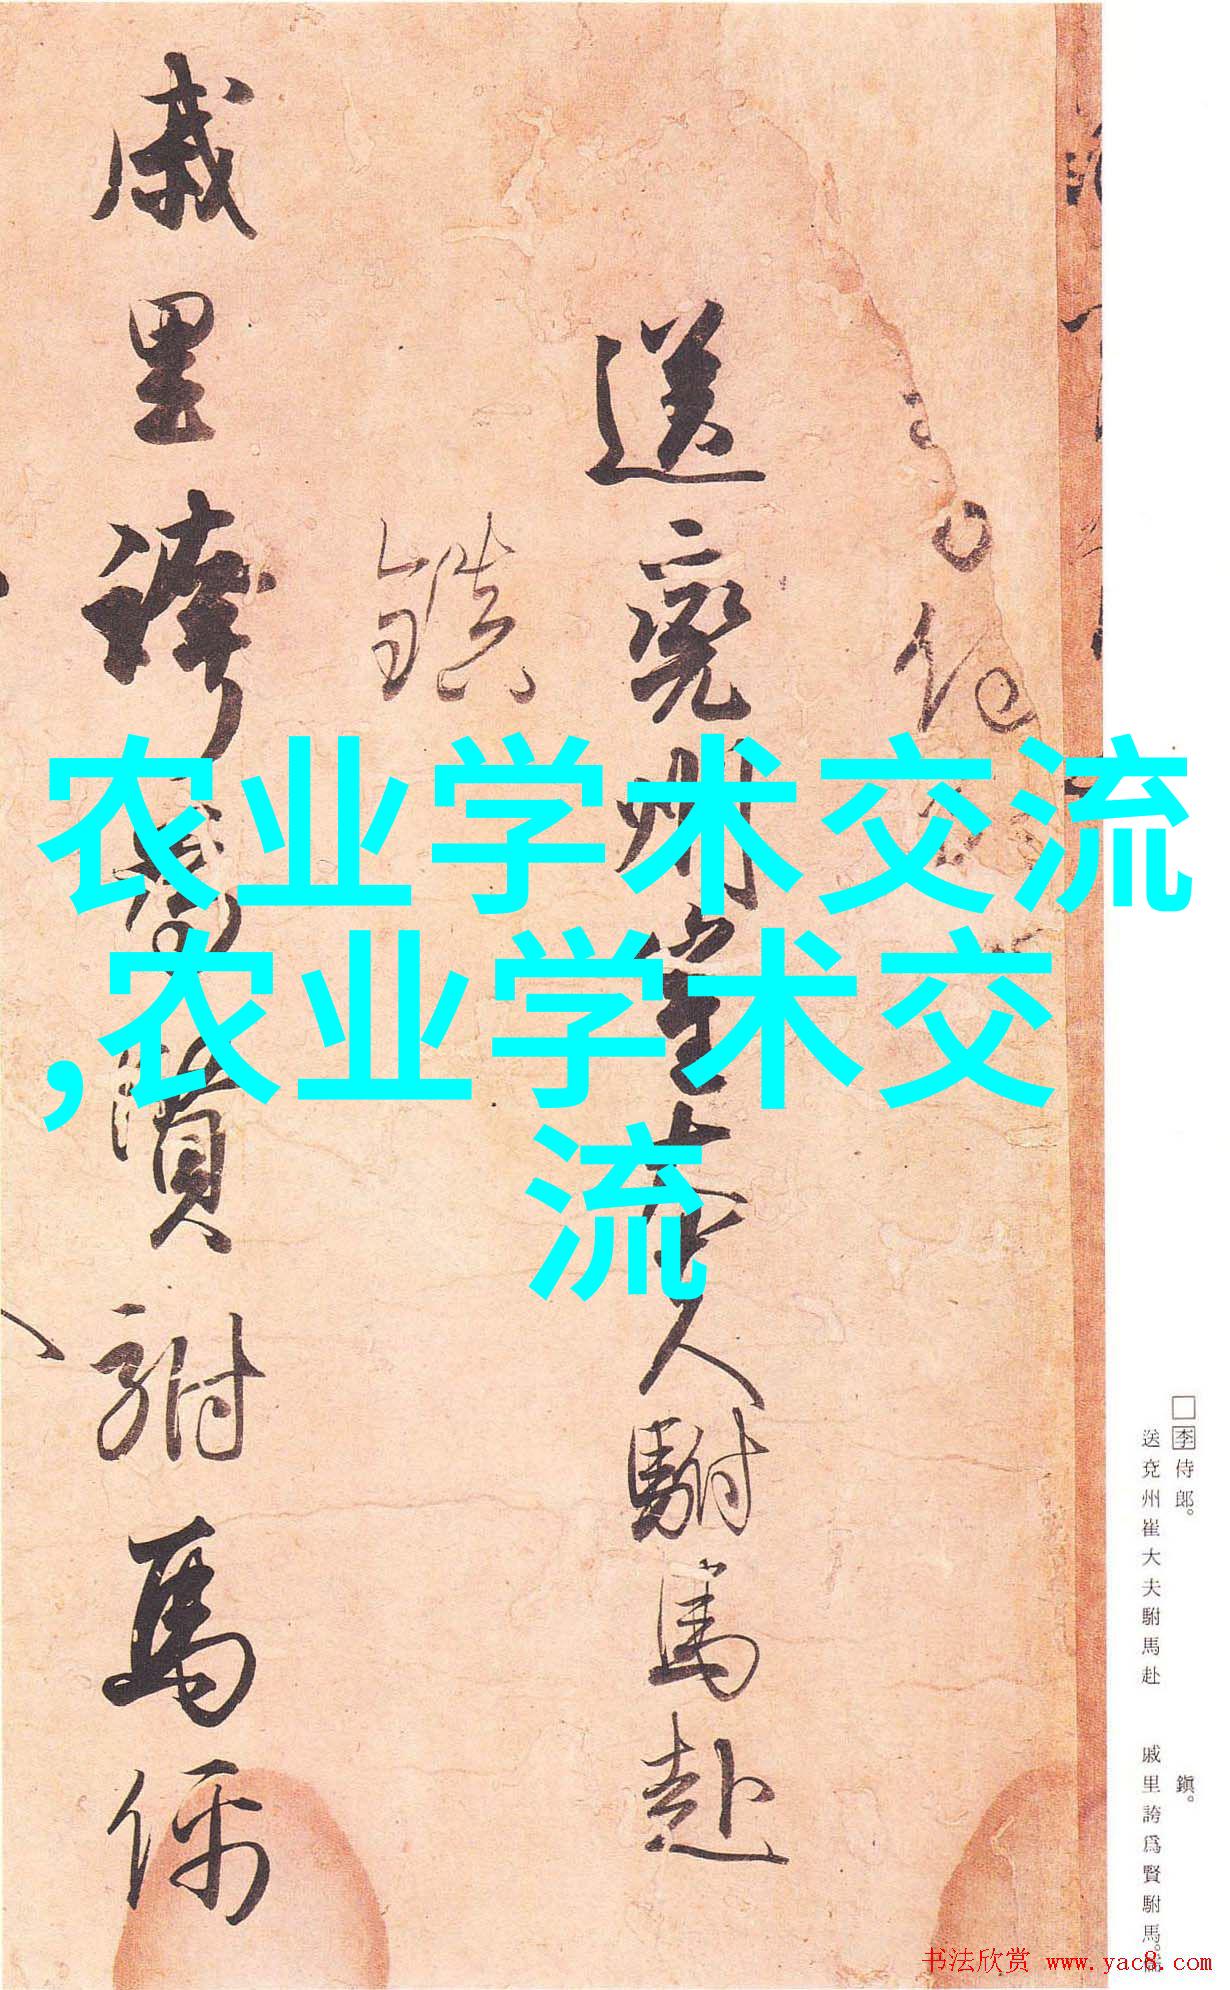 送兗州崔大夫駙馬赴
鎮
戚里誇為賢駙馬儒
农业学术交流
,农业学术交
流
□李侍郎。
送兗州崔大夫駙馬赴
鎭。
戚里誇爲賢駙馬。
书法欣赏 www.yac8.com